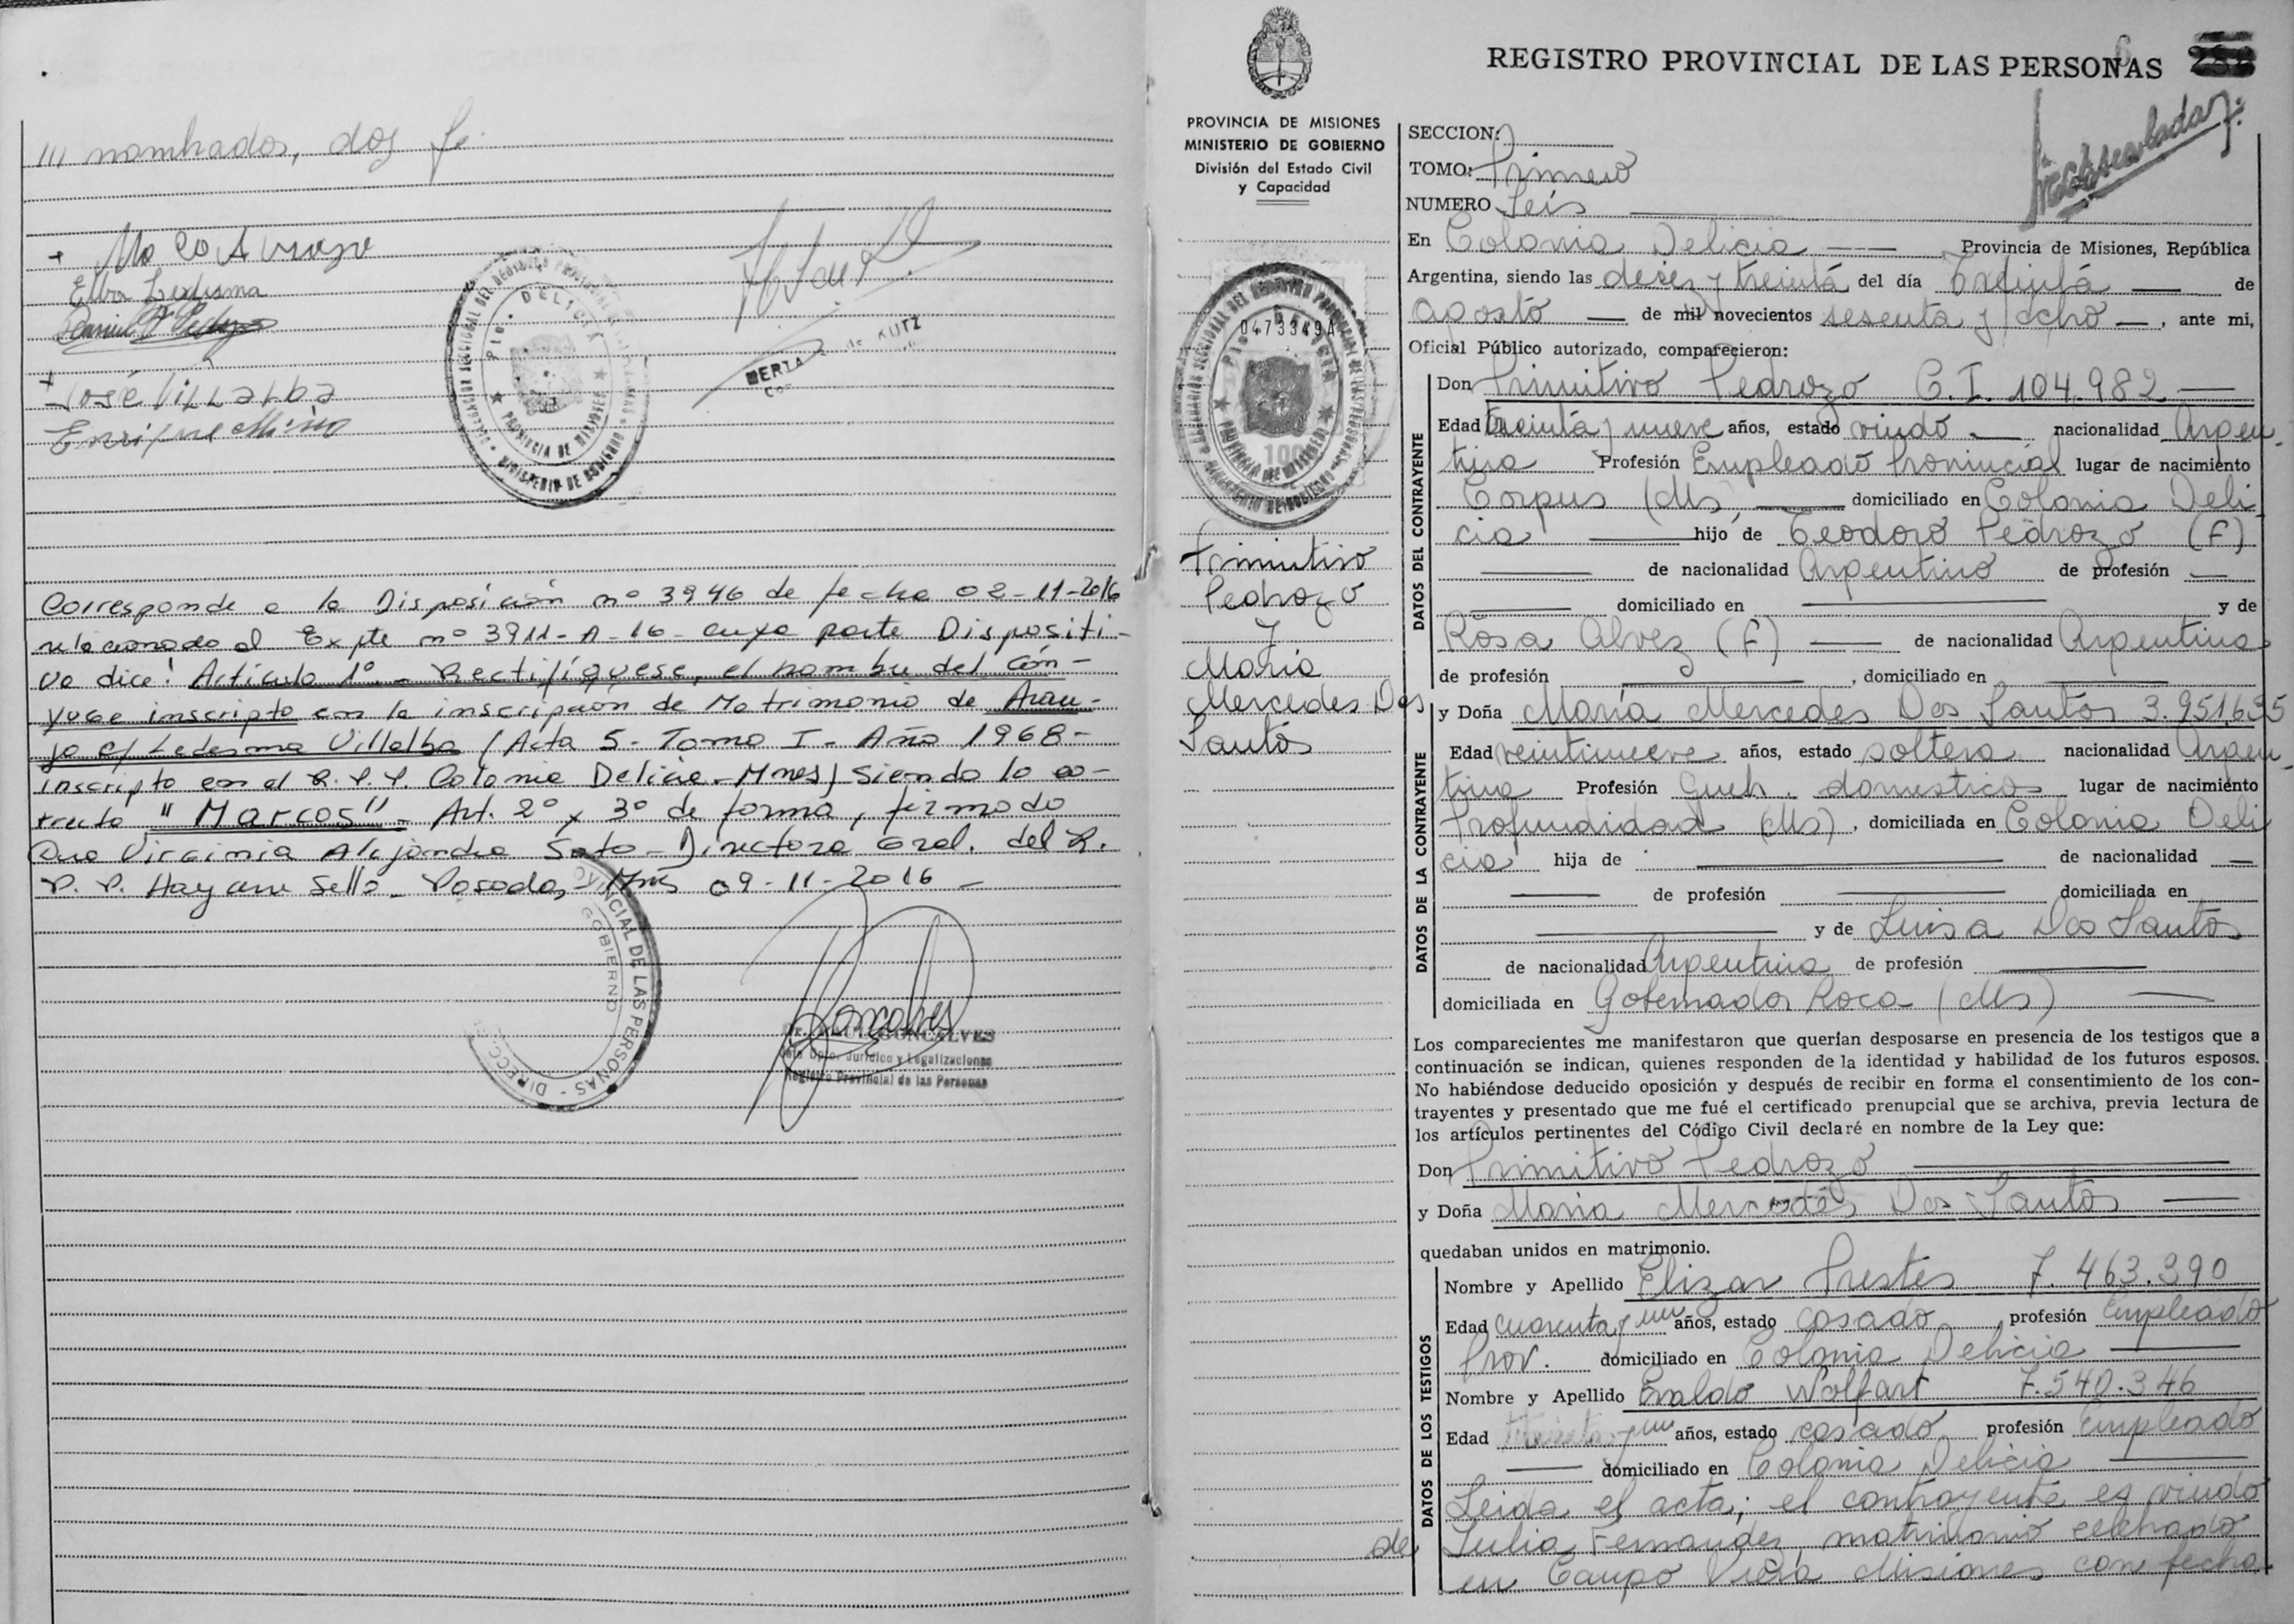 /// nombrados, doy fe
Elba Ledesma
José Villalba
Enrique Miño
DELEGACION SECCIONAL DEL REGISTRO PROVINCIAL DE LAS PERSONAS
Pto. DELICIA
PROVINCIA DE MISIONES
MINISTERIO DE GOBIERNO
BERTA de KUTZ
Corresponde a la Disposición nº 3946 de fecha 02-11-2016
relacionado al Expte nº 3911-A-16- cuya parte Dispositi-
va dice: Artículo 1º - Rectifíquese, el nombre del Cón-
yuge inscripto en la inscripción de Matrimonio de Arau-
jo c/ Ledesma Villalba (Acta 5- Tomo I- Año 1968-
inscripto en el R.P.P. Colonia Delicia-Mnes) siendo lo co-
rrecto "Marcos" - Art. 2º y 3º de forma, firmado
Dra Virginia Alejandra Soto - Directora Gral. del R.
P.P. Hay un Sello - Posadas, Mnes 09-11-2016 -
PROVINCIAL DE LAS PERSONAS - DIRECC
GOBIERNO
GONCALVES
Dpto. Jurídico y Legalizaciones
Registro Provincial de las Personas
REGISTRO PROVINCIAL DE LAS PERSONAS 6
PROVINCIA DE MISIONES
MINISTERIO DE GOBIERNO
División del Estado Civil
y Capacidad
0473349A
Primitivo
Pedrozo
y
Maria
Mercedes Dos
Santos
SECCION:
TOMO: Primero
NUMERO Seis
En Colonia Delicia Provincia de Misiones, República
Argentina, siendo las diez y treinta del día treinta de
agosto de mil novecientos sesenta y ocho, ante mi,
Oficial Público autorizado, comparecieron:
DATOS DEL CONTRAYENTE
Don Primitivo Pedrozo C.I. 104.982
Edad treinta y nueve años, estado viudo nacionalidad Argen-
tina Profesión Empleado Provincial lugar de nacimiento
Corpus (Ms) domiciliado en Colonia Deli-
cia hijo de Teodoro Pedrozo (F)
de nacionalidad Argentino de profesión
domiciliado en y de
Rosa Alvez (F) de nacionalidad Argentina
de profesión , domiciliado en
DATOS DE LA CONTRAYENTE
y Doña María Mercedes Dos Santos 3.951.635
Edad veintinueve años, estado soltera nacionalidad Argen-
tina Profesión Queh. domesticos lugar de nacimiento
Profundidad (Ms), domiciliada en Colonia Deli
cia hija de de nacionalidad
de profesión domiciliada en
y de Luisa Dos Santos
de nacionalidad Argentina de profesión
domiciliada en Gobernador Roca (Ms)
Los comparecientes me manifestaron que querían desposarse en presencia de los testigos que a
continuación se indican, quienes responden de la identidad y habilidad de los futuros esposos.
No habiéndose deducido oposición y después de recibir en forma el consentimiento de los con-
trayentes y presentado que me fué el certificado prenupcial que se archiva, previa lectura de
los artículos pertinentes del Código Civil declaré en nombre de la Ley que:
Don Primitivo Pedrozo
y Doña Maria Mercedes Dos Santos
quedaban unidos en matrimonio.
DATOS DE LOS TESTIGOS
Nombre y Apellido Elizar Prestes 7.463.390
Edad cuarenta y un años, estado casado profesión Empleado
Prov. domiciliado en Colonia Delicia
Nombre y Apellido Evaldo Wolfart 7.540.346
Edad treinta y un años, estado casado profesión Empleado
domiciliado en Colonia Delicia
Leida el acta; el contrayente es viudo
de Julia Fernandez, matrimonio celebrado
en Campo Viera Misiones con fecha